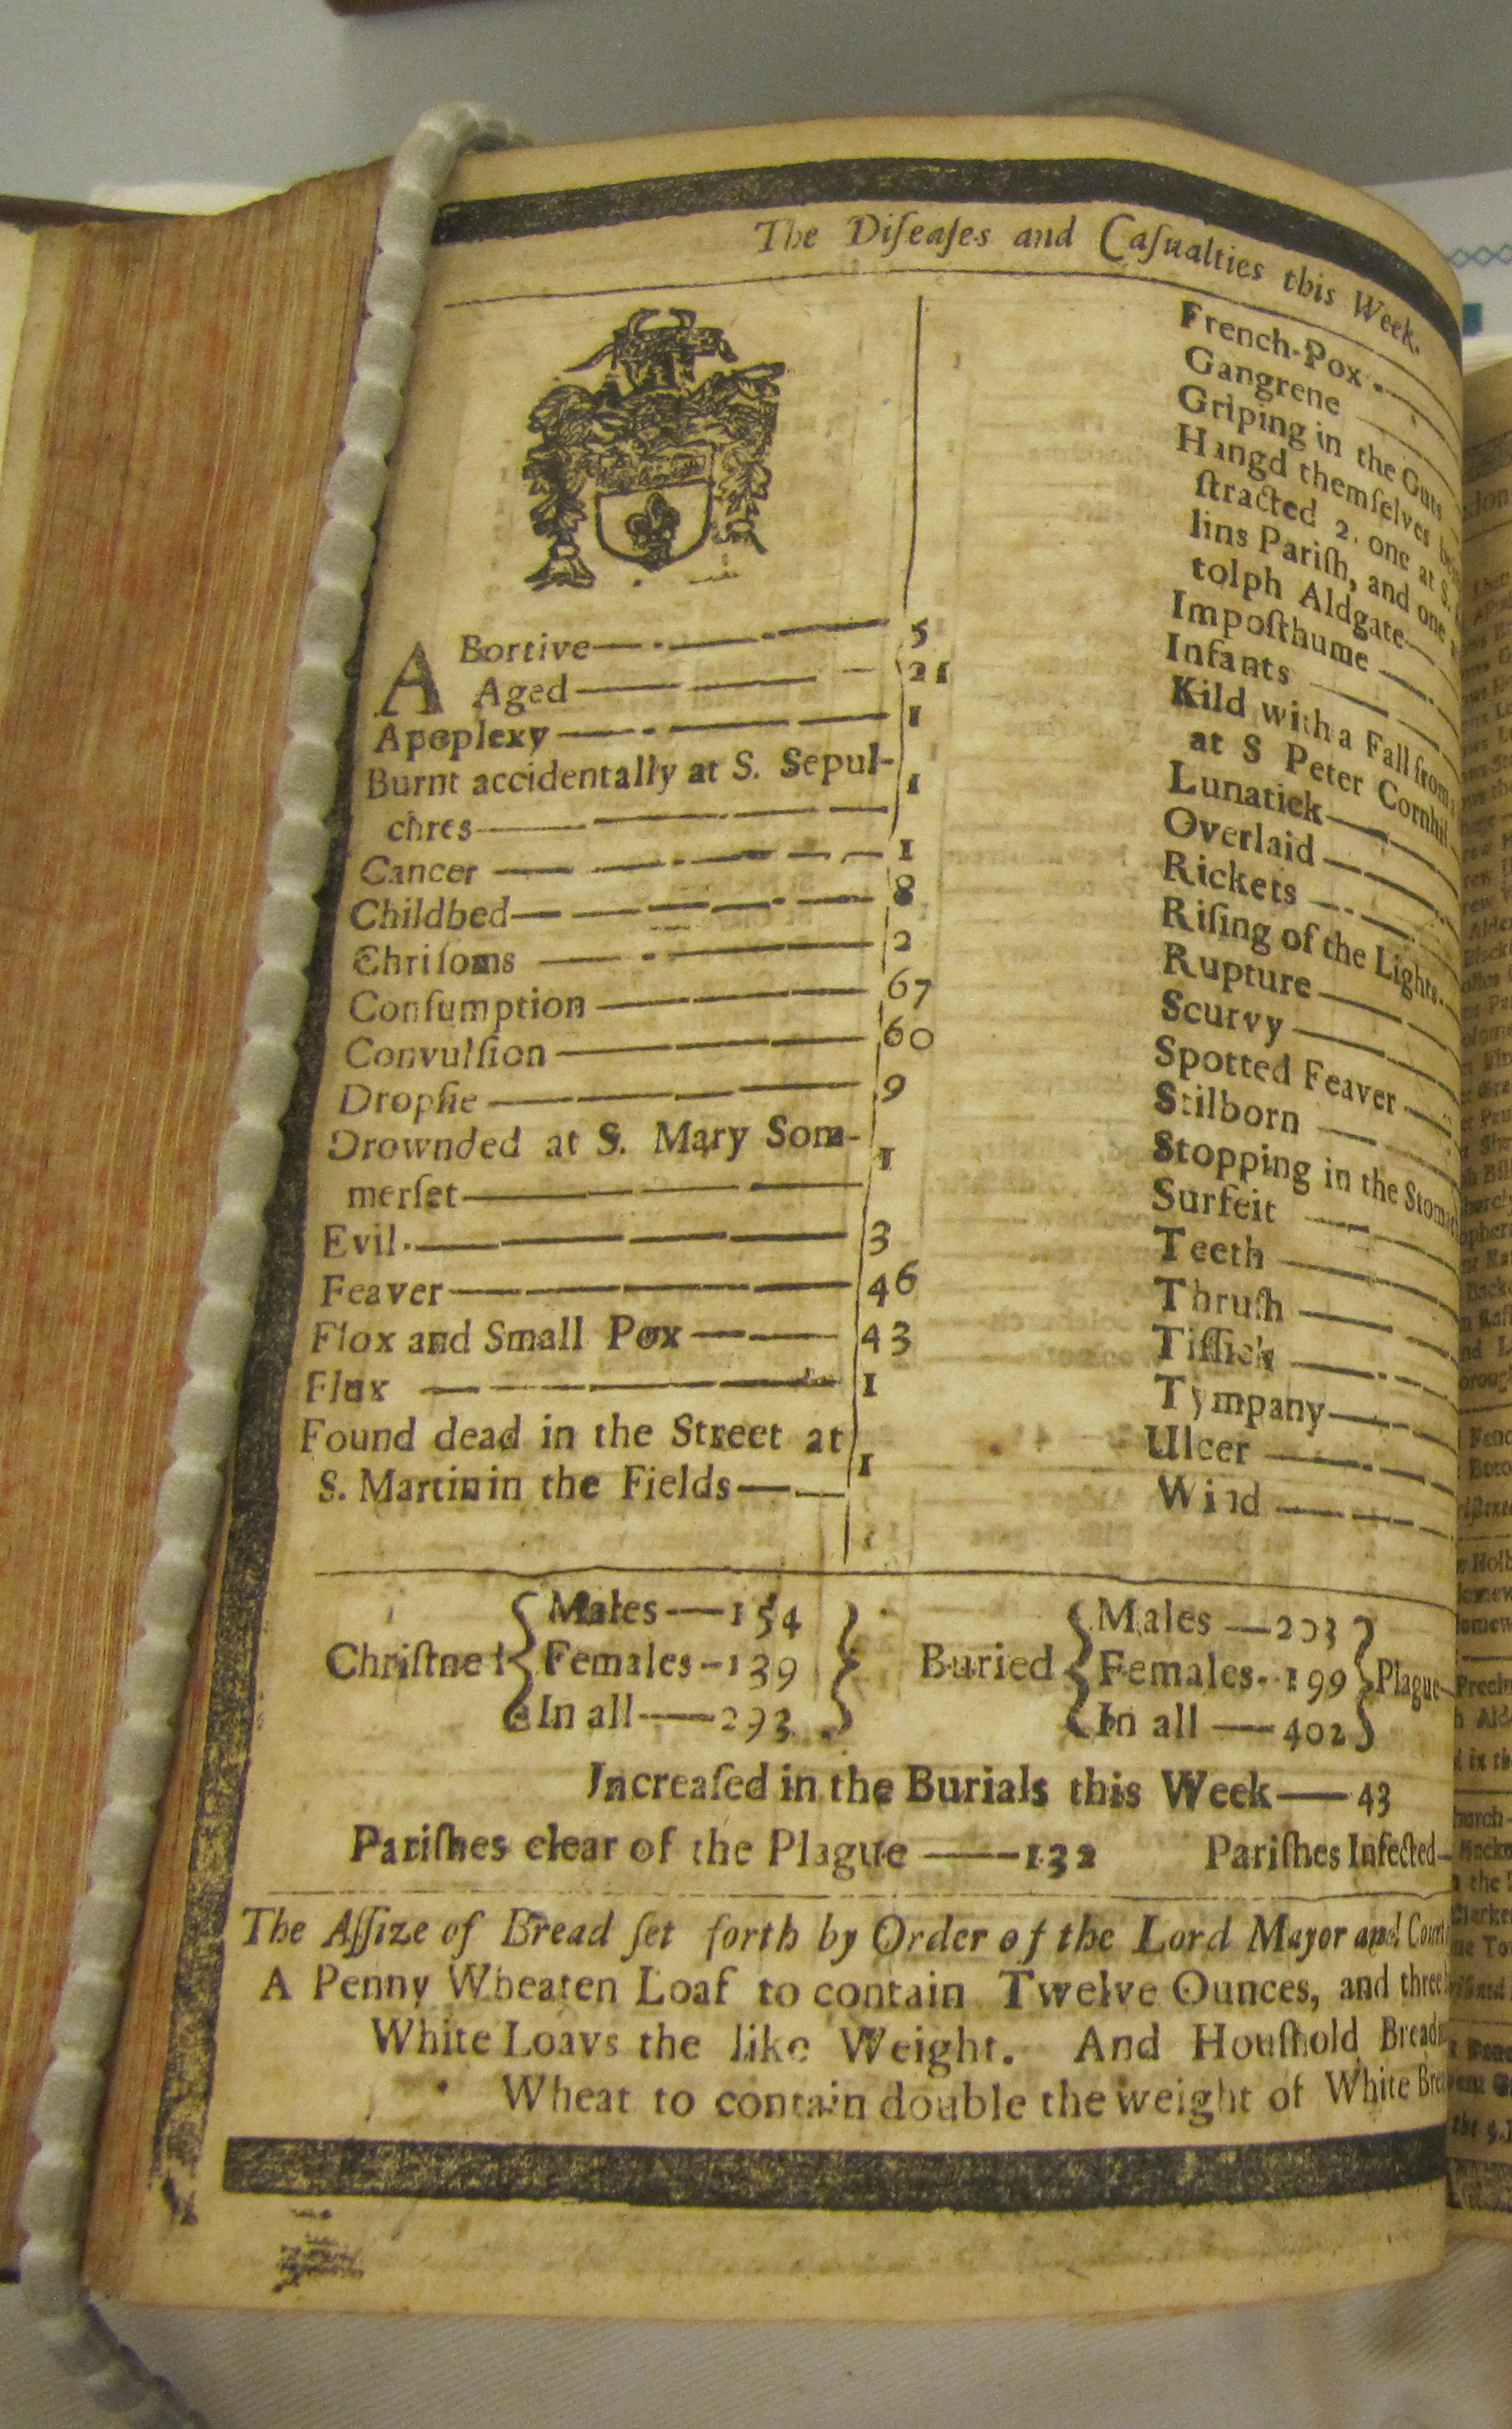 The Diſeaſes and Caſualties this Week.
ABortive 5
Aged 21
Apoplexy 1
Burnt accidentally at S. Sepul-
chres 1
Cancer 1
Childbed 8
Chriſoms 2
Conſumption 67
Convulſion 60
Dropſie 9
Drownded at S. Mary Som-
merſet 1
Evil 3
Feaver 46
Flox and Small Pox 43
Flux 1
Found dead in the Street at
S. Martin in the Fields 1
French-Pox
Gangrene
Griping in the Guts
Hangd themſelves
ſtracted 2. one at S.
lins Pariſh, and one
tolph Aldgate
Impoſthume
Infants
Kild with a Fall from
at S Peter Cornhil
Lunatick
Overlaid
Rickets
Riſing of the Lights
Rupture
Scurvy
Spotted Feaver
Stilborn
Stopping in the Stomac
Surfeit
Teeth
Thruſh
Tiſſick
Tympany
Ulcer
Wind
Chriſtned { Males 154
Females 139
In all 293
Buried { Males 203
Females 199
In all 402 } Plague
Increaſed in the Burials this Week 43
Pariſhes clear of the Plague 132 Pariſhes Infected
The Aſſize of Bread ſet forth by Order of the Lord Mayor and Court
A Penny Wheaten Loaf to contain Twelve Ounces, and three
White Loavs the like Weight. And Houſhold Bread
Wheat to contain double the weight of White